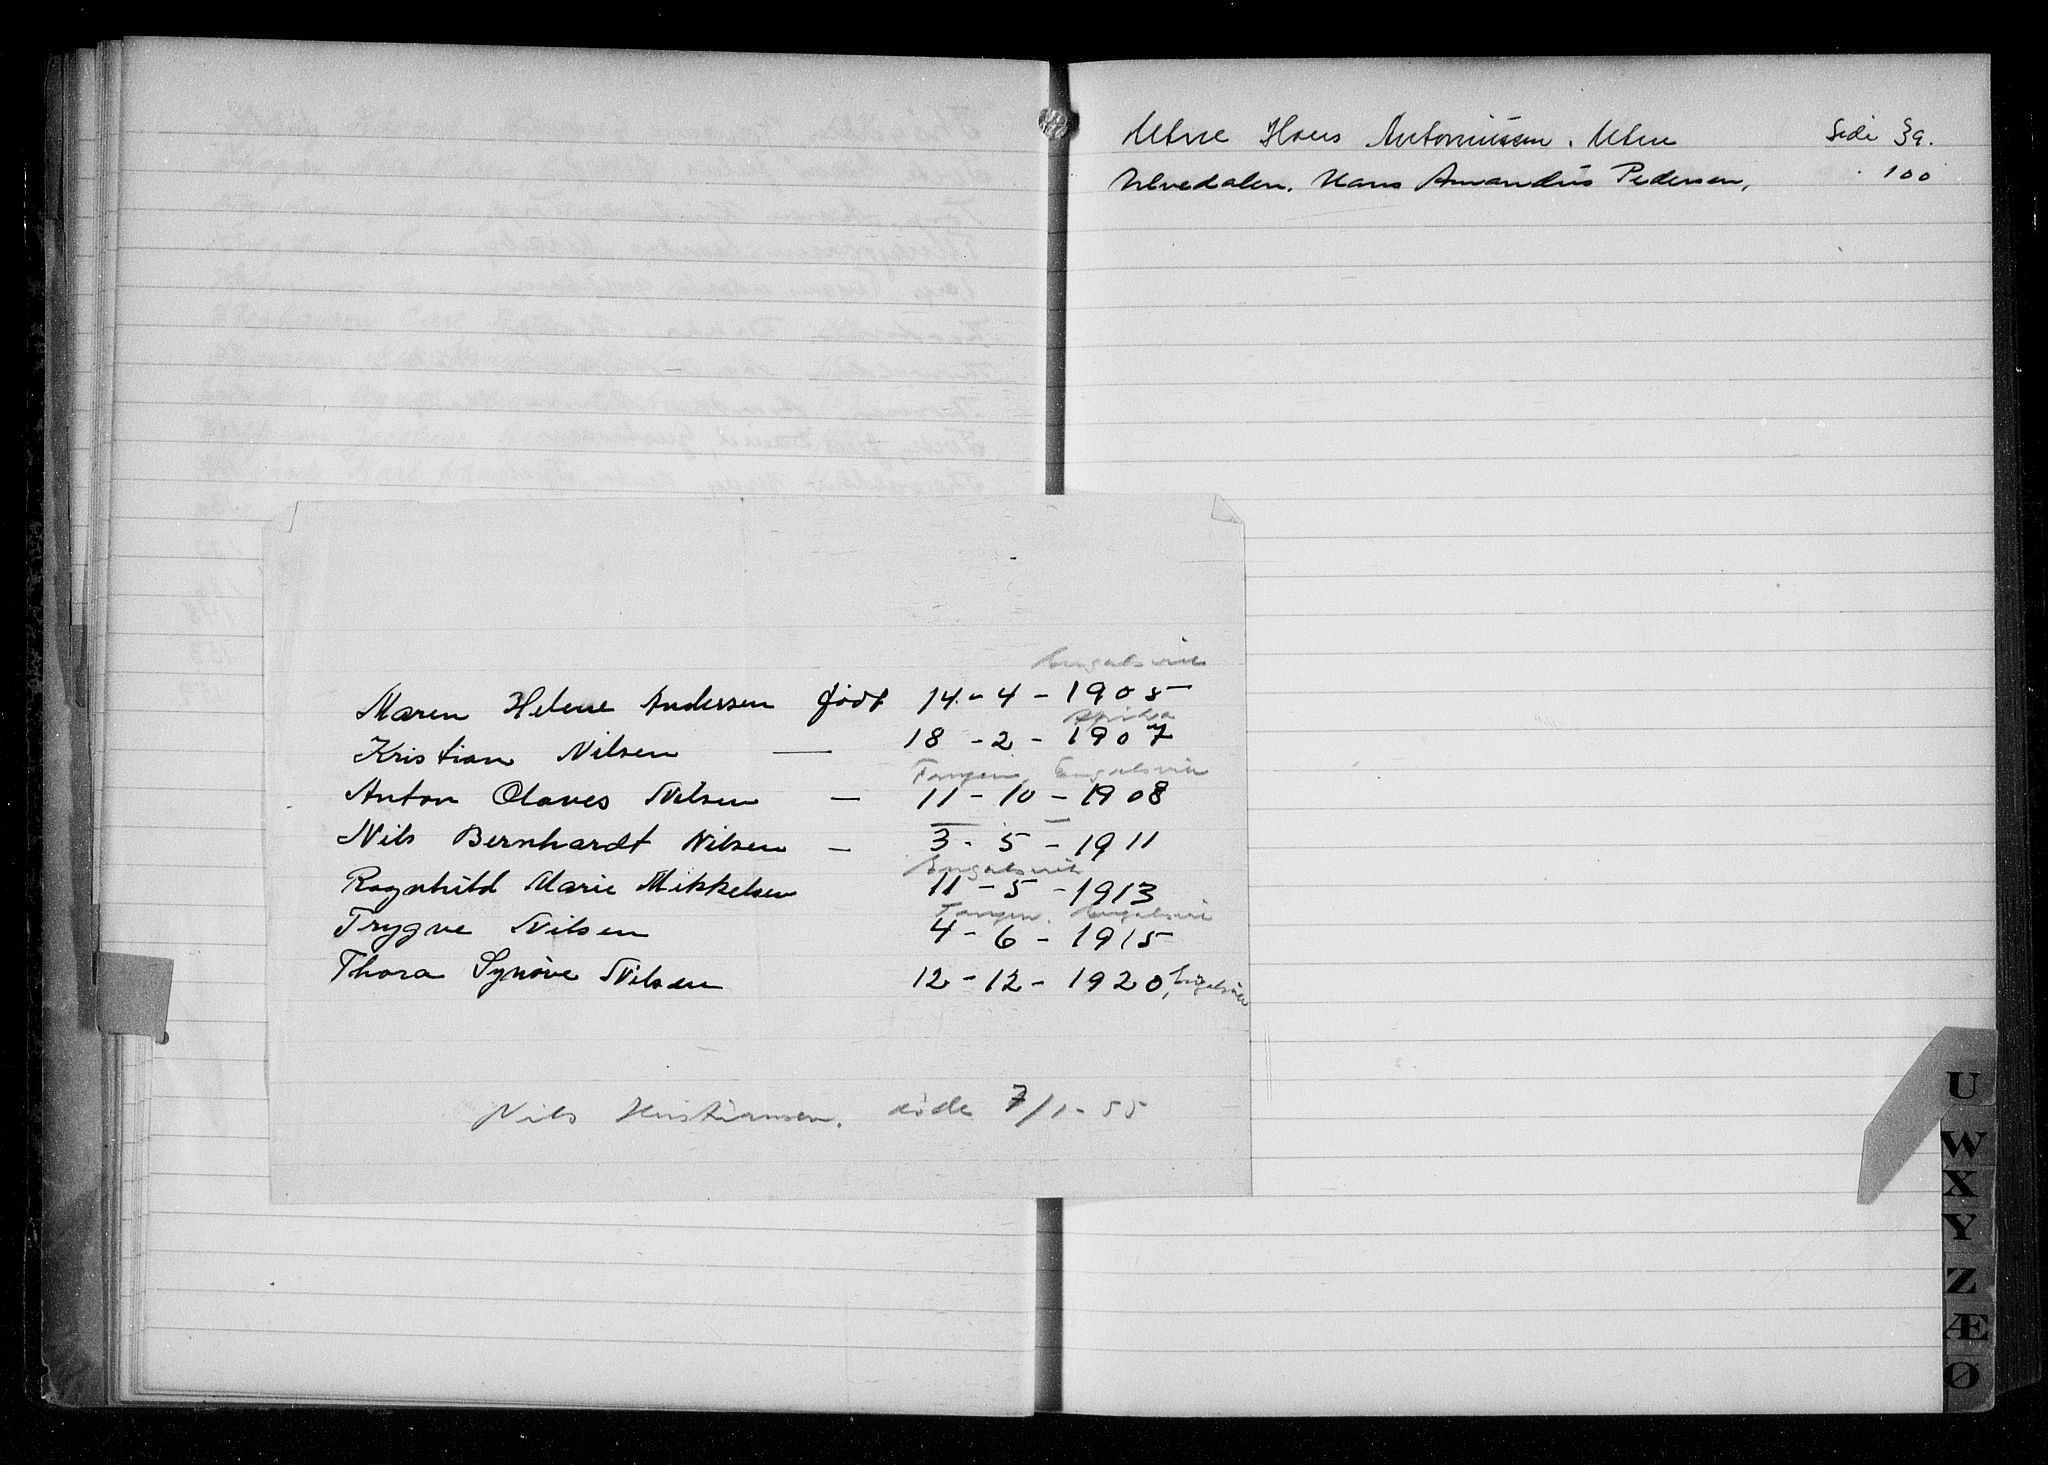 Utne Hans Antoniussen. Utne Side 39.
Ulvedalen. Hans Amandus Pedersen, " 100
Engalsvik
Maren Helene Andersen født 14 - 4 - 1905
Afrika
Kristian Nilsen — 18 - 2 - 1907
Tangen, Engalsvik
Anton Olaves Nilsen — 11 - 10 - 1908
— —
Nils Bernhardt Nilsen — 3 - 5 - 1911
Engalsvik
Ragnhild Marie Mikkelsen 11 - 5 - 1913
Tangen, Engalsvik
Trygve Nilsen 4 - 6 - 1915
Thora Synöve Nilsen 12 - 12 - 1920, Engalsvik
Nils Kristiansen. døde 7/1 - 55
U
W
X
Y
Z
Æ
Ø